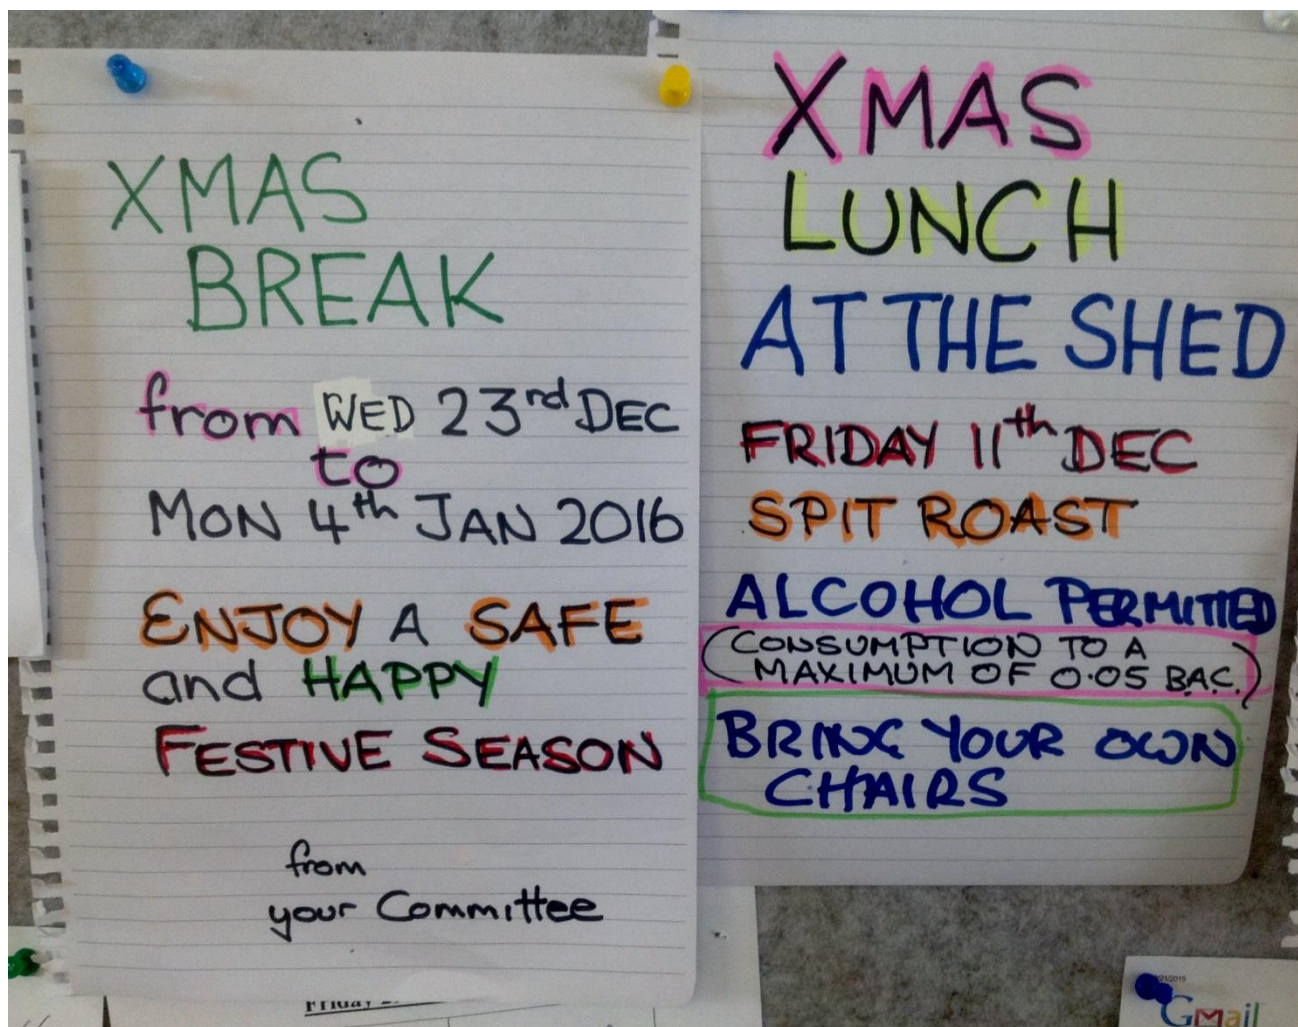 XMAS
BREAK
from WED 23rd DEC
to
MON 4th JAN 2016
ENJOY A SAFE
and HAPPY
FESTIVE SEASON
from
your Committee
XMAS
LUNCH
AT THE SHED
FRIDAY 11th DEC
SPIT ROAST
ALCOHOL PERMITTED
(CONSUMPTION TO A
MAXIMUM OF 0.05 B.A.C.)
BRING YOUR OWN
CHAIRS
Friday
Gmail